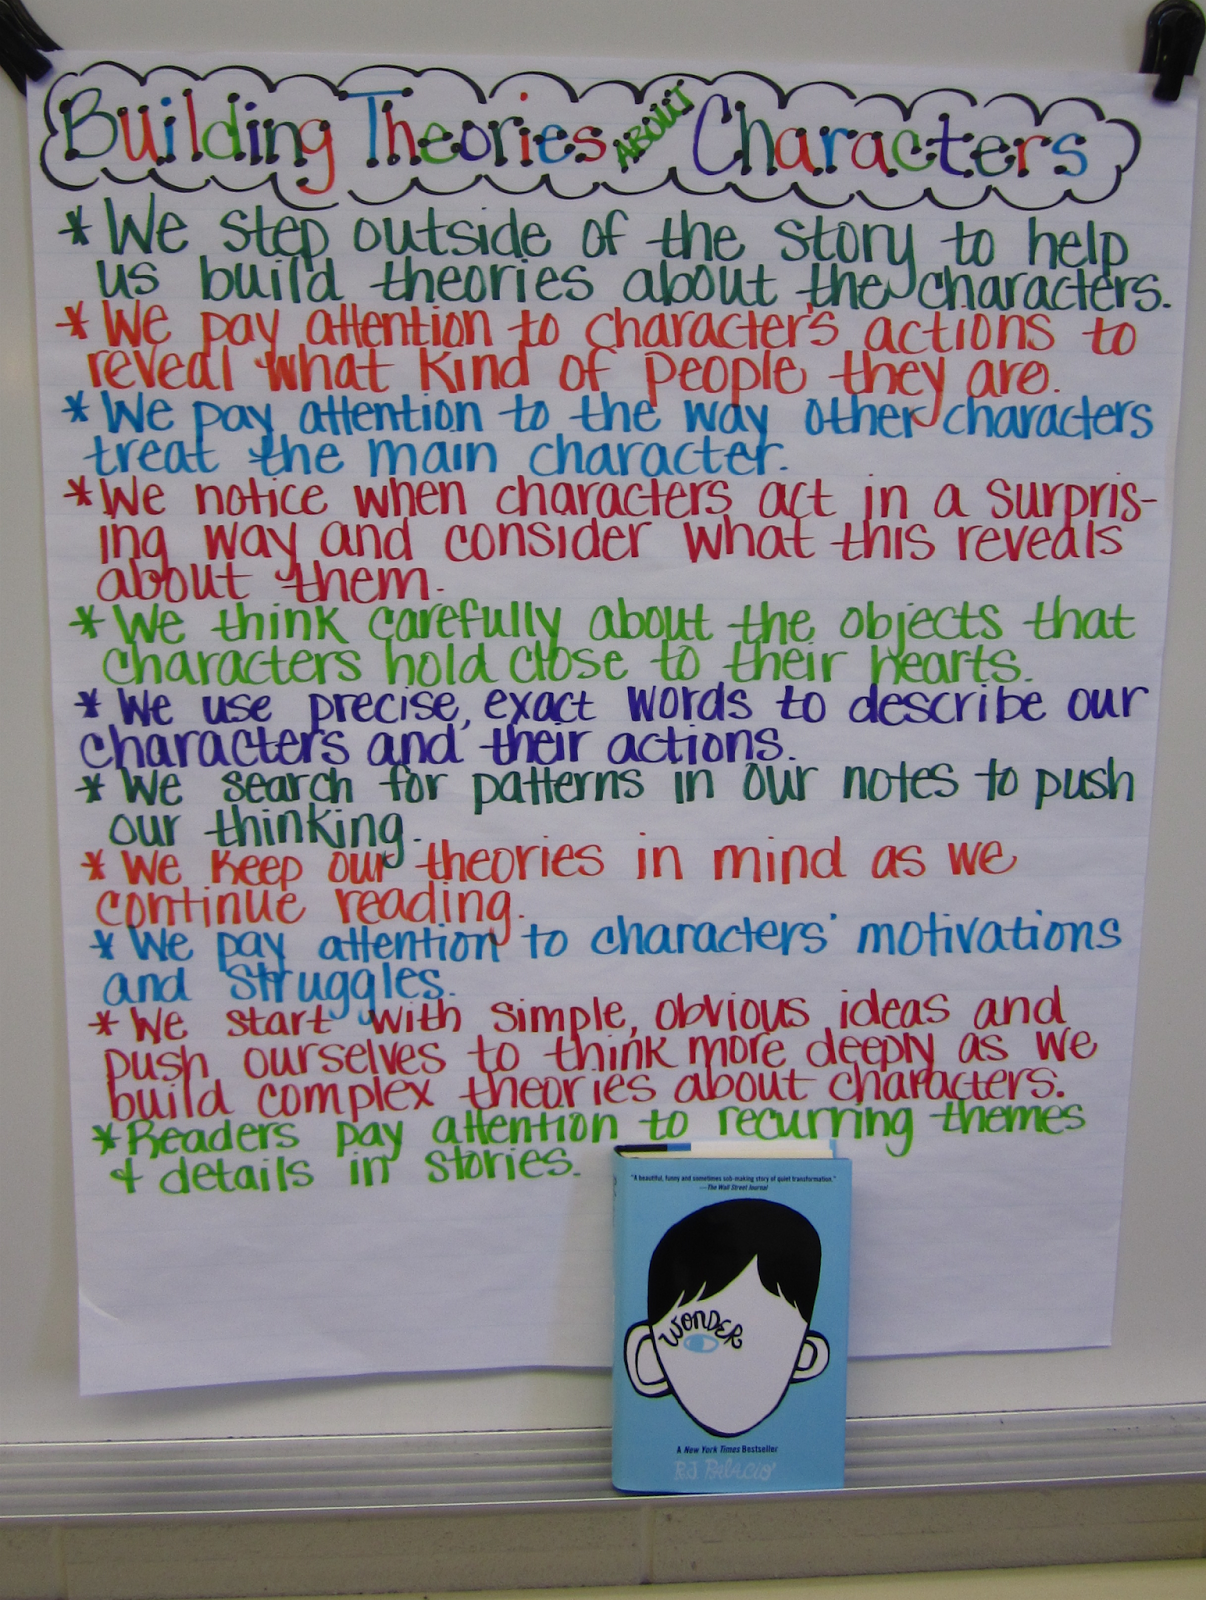 Building Theories ABOUT Characters
* We step outside of the story to help
us build theories about the characters.
* We pay attention to character's actions to
reveal what kind of people they are.
* We pay attention to the way other characters
treat the main character.
* We notice when characters act in a surpris-
ing way and consider what this reveals
about them.
* We think carefully about the objects that
characters hold close to their hearts.
* We use precise, exact words to describe our
characters and their actions.
* We search for patterns in our notes to push
our thinking.
* We keep our theories in mind as we
continue reading.
* We pay attention to characters' motivations
and struggles.
* We start with simple, obvious ideas and
push ourselves to think more deeply as we
build complex theories about characters.
* Readers pay attention to recurring themes
& details in stories.
"A beautiful, funny and sometimes sob-making story of quiet transformation."
—The Wall Street Journal
WONDER
A New York Times Bestseller
RJ Palacio